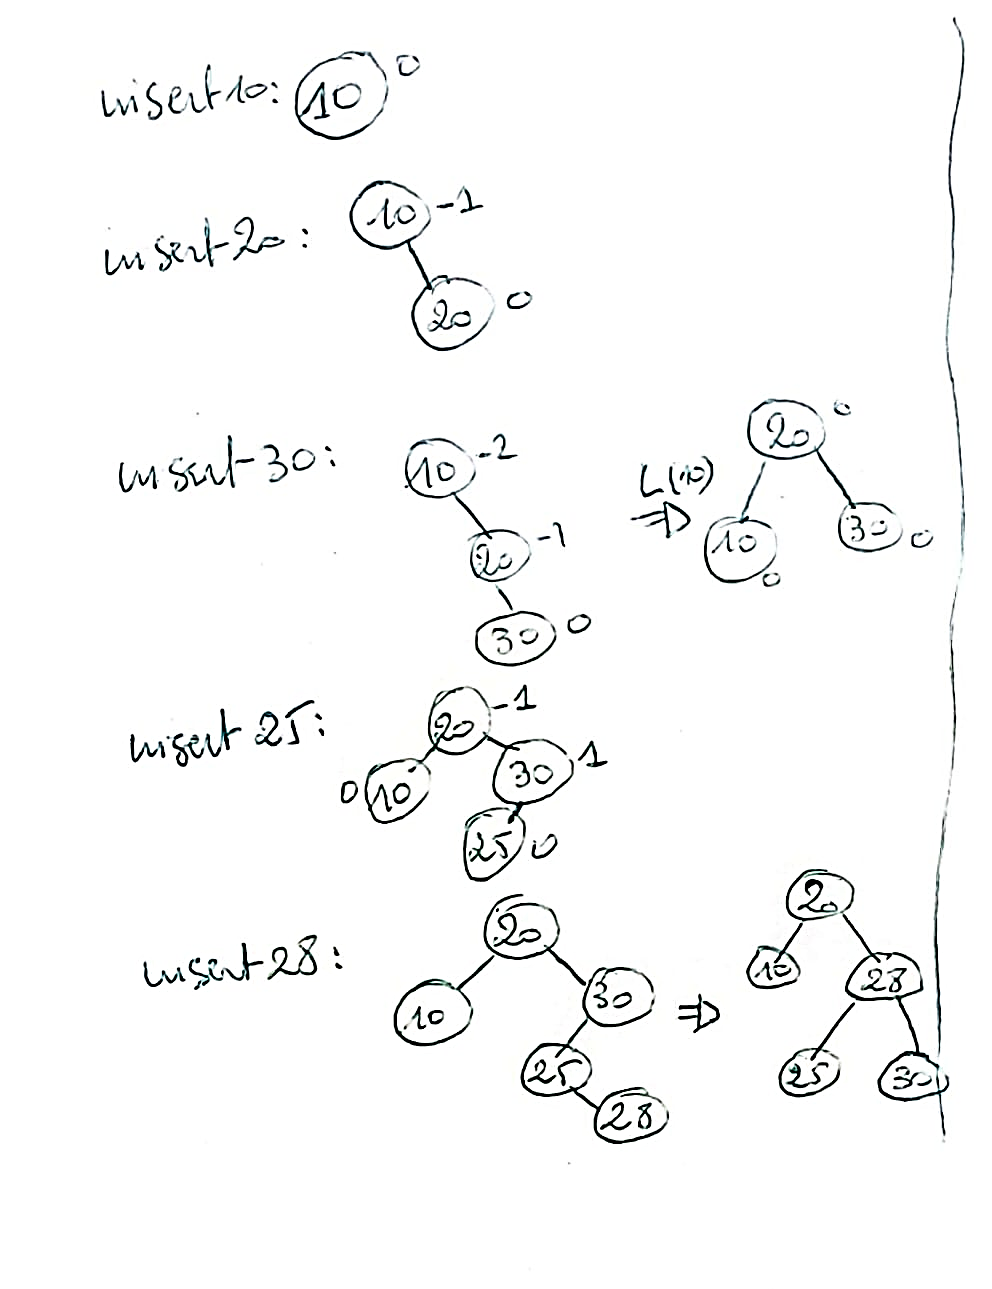 insert 10: 10 0
insert 20: 10 -1
20 0
insert 30: 10 -2
20 -1
30 0
L(10)
⇒
20 0
10 0 30 0
insert 25: 20 -1
0 10 30 1
25 0
insert 28: 20
10 30
25
28
⇒
20
10 28
25 30